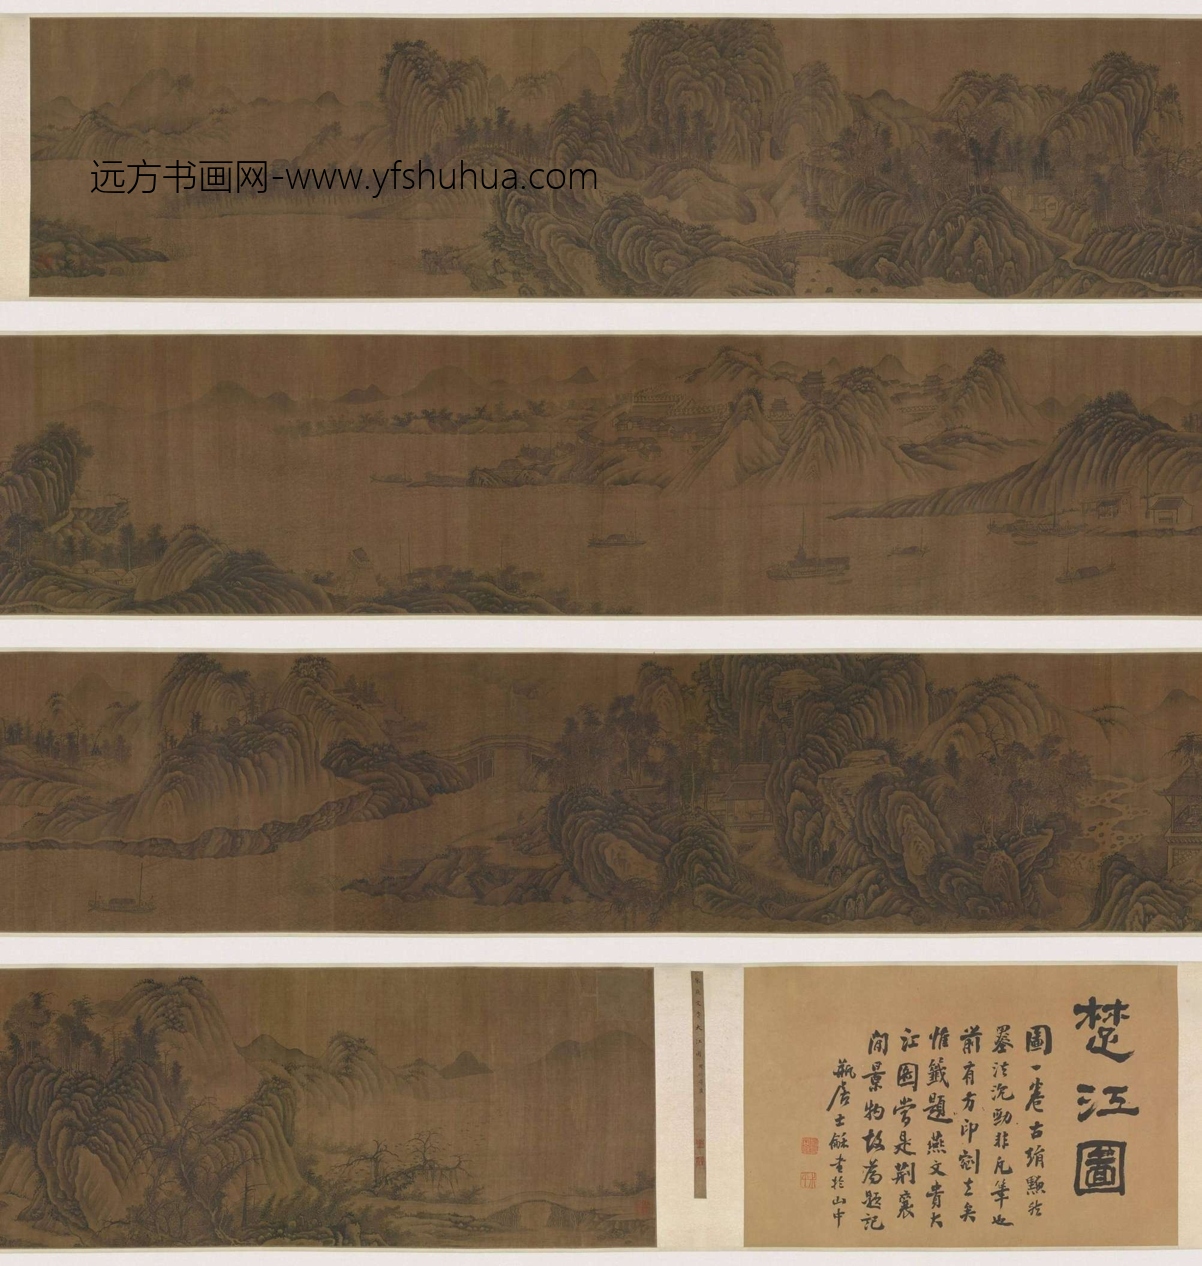 远方书画网-www.yfshuhua.com
楚江圖
圖一卷古絹黟然
墨法沉勁非凡筆也
前有方印剜去矣
惟籤題燕文貴大
江圖當是荆襄
間景物故爲題記
瓶居士龢書於山中